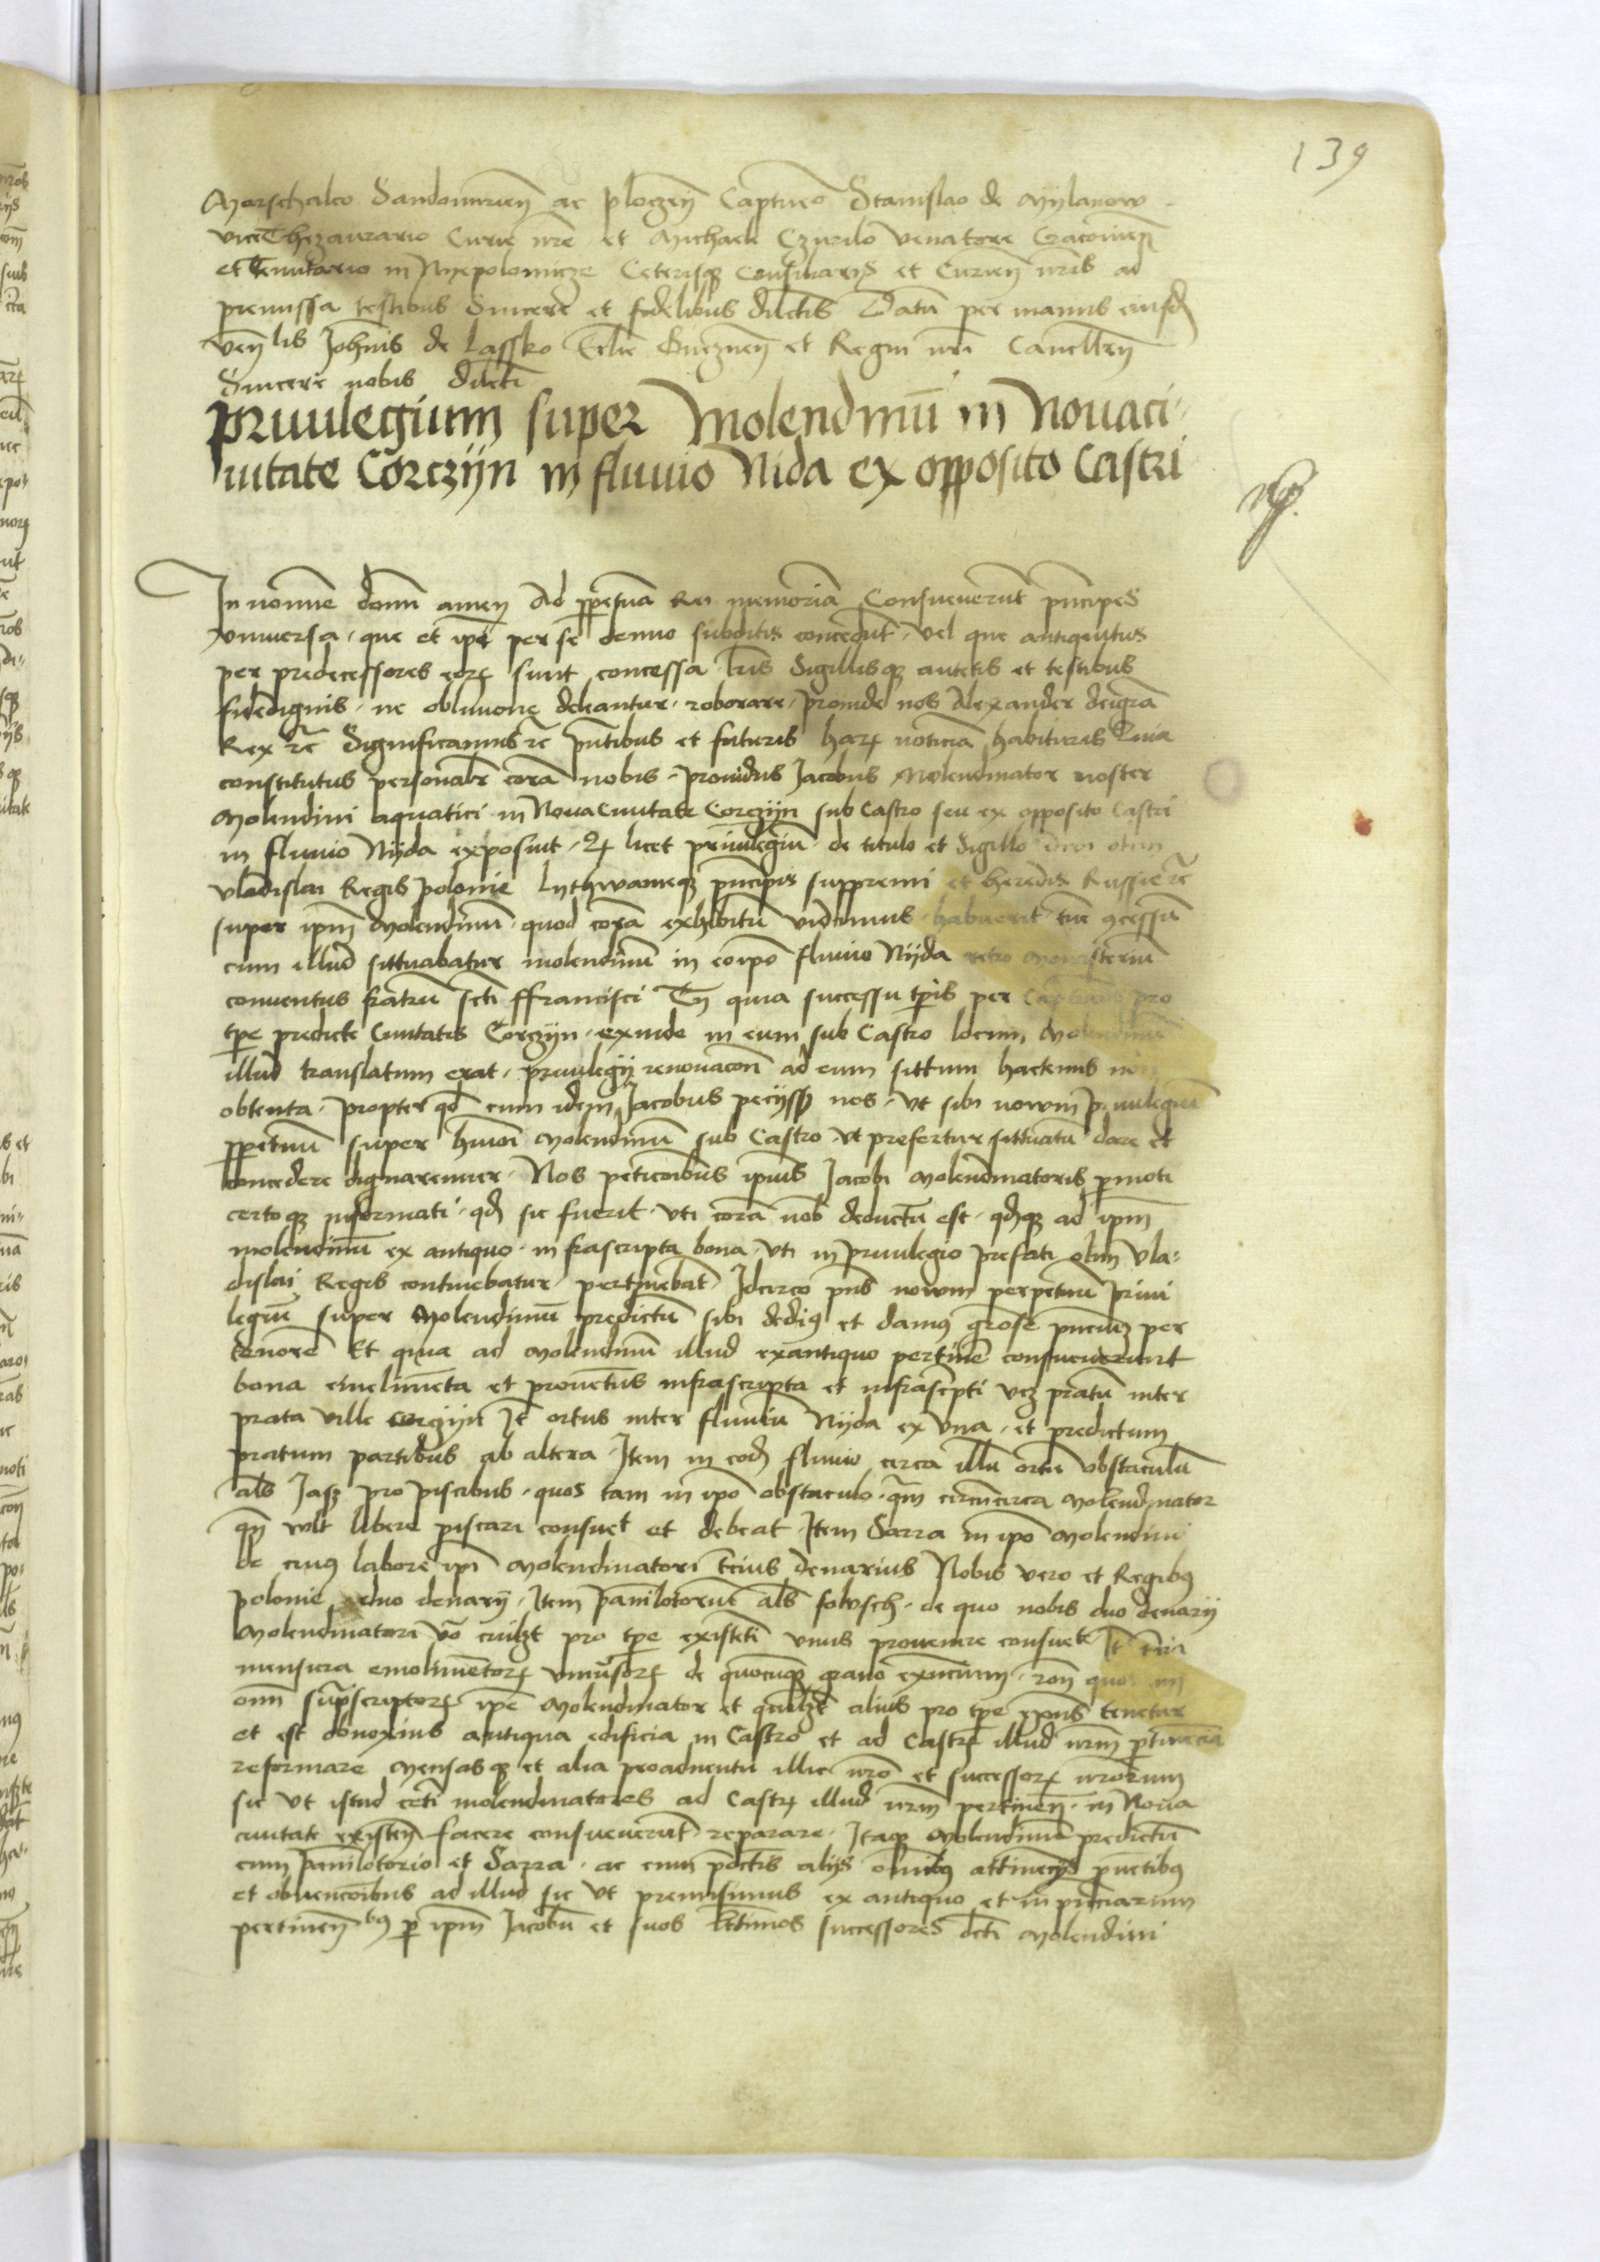 139
Marschalco Sandomirien ac plocen Captueo Stanislao de Mylanow
vice Thezaurario Curie nre et Michaele Czurilo venatore Cracovien
et tenutario in Nyepolomicze Ceterisq Consiliarys et Curien nris ad
premissa testibus Sincere et fidelibus dilectis Datu per manus eiusd
ven lis Johnis de Lassko Eclie Gneznen et Regni nri Cancellen
Sincere nobis dilecti
privilegium super Molendinu in Novaci
vitate Corczyn in fluvio Nida ex opposito Castri
In nomine domi amen Ad ppetuam Rei memoria Consueverut pncipes
universa que et ipi per se denuo subditis concedut vel que antiquitus
per predecessores eorz sunt concessa lris Sigillisqz autetis et testibus
fidedignis ne oblivione deleantur roborare proinde nos Alexander dei gra
Rex rc Significamus rc pntibus et futuris harz noticia habituris Quia
constitutus personalr cora nobis providus Jacobus Molendinator noster
Molendini aquatici in Nova Civitate Corczyn sub Castro seu ex opposito Castri
in fluvio Nyda exposuit Qz licet privilegiu de titulo et Sigillo divi olim
vladislai Regis polonie Lythwanieqz pncipis suppremi et heredis Russie rc
super ipm Molendinu quod cora exhibitu vidimus habuerit tuc cessu
cum illud sittuabatur molendinu in corpo fluvio Nyda retro Monasteriu
conventus fratru scti ffrancisci Tn quia successu tpis per Capitaneu pro
tpe predicte Civitatis Corczyn exinde in eum sub Castro locum Molendinu
illud translatum erat privilegy renovacon ad eum sittum hactenus non
obtenta propter qd cum idem Jacobus peciyss nos ut sibi novum privilegium
ppetuu super hmoi Molendinu sub Castro ut prefertur sittuatu dare et
concedere dignaremur Nos peticoibus ipius Jacobi Molendinatoris pmoti
certoqz informati qd sic fuerit uti cora nob deductu est qdqz ad ipm
molendinu ex antiquo infrascripta bona uti in privilegio prefati olim vla
dislai Regis continebatur pertinebat Idcirco pns novum perpetuu privi
legiu super Molendinu predictu sibi dedim et damus grose pnciuz per
tenore Et quia ad Molendinu illud exantiquo pertine consueverunt
bona emolimeta et provetus infrascripta et infrascripti vcz pratu inter
prata ville Corczyn It ortus inter fluviu Nyda ex una et predictum
pratum partibus ab altera Item in eod fluvio circa illu ortu obstaculu
als Jasz pro piscibus quos tam in ipo obstaculo qm circucirca Molendinator
qn vult libere piscari consuet et debeat Item Sarra in ipo Molendini
de cuius labore ipi Molendinatori tcius denarius Nobis vero et Regibus
polonie duo denary Item panilotoriu als folusch de quo nobis duo denary
Molendinatori vo cuilzt pro tpe existeti unus provenire consuet It tcia
mensura emolimetorz de quocuqz grano
onm suprascriptorz ipe Molendinator et quilzt alius pro tpe tenetur
et est obnoxius antiqua edificia in Castro et ad Castrz illud nrm ptinencia
reformare Mensasqz et alia illic nro et successorz nrorum
sic ut istud ceti molendinatores ad Castrz illud nrm pertinen in Nova
civitate existen facere consueverut reparare Itaqz Molendinu predictu
cum panilotorio et Sarra ac cum alys omibus attinecys pvetibus
et obvencoibus ad illud sic ut premisimus ex antiquo et in
pertinen bus p ipm Jacobu et suos lttimos successores dcti Molendini